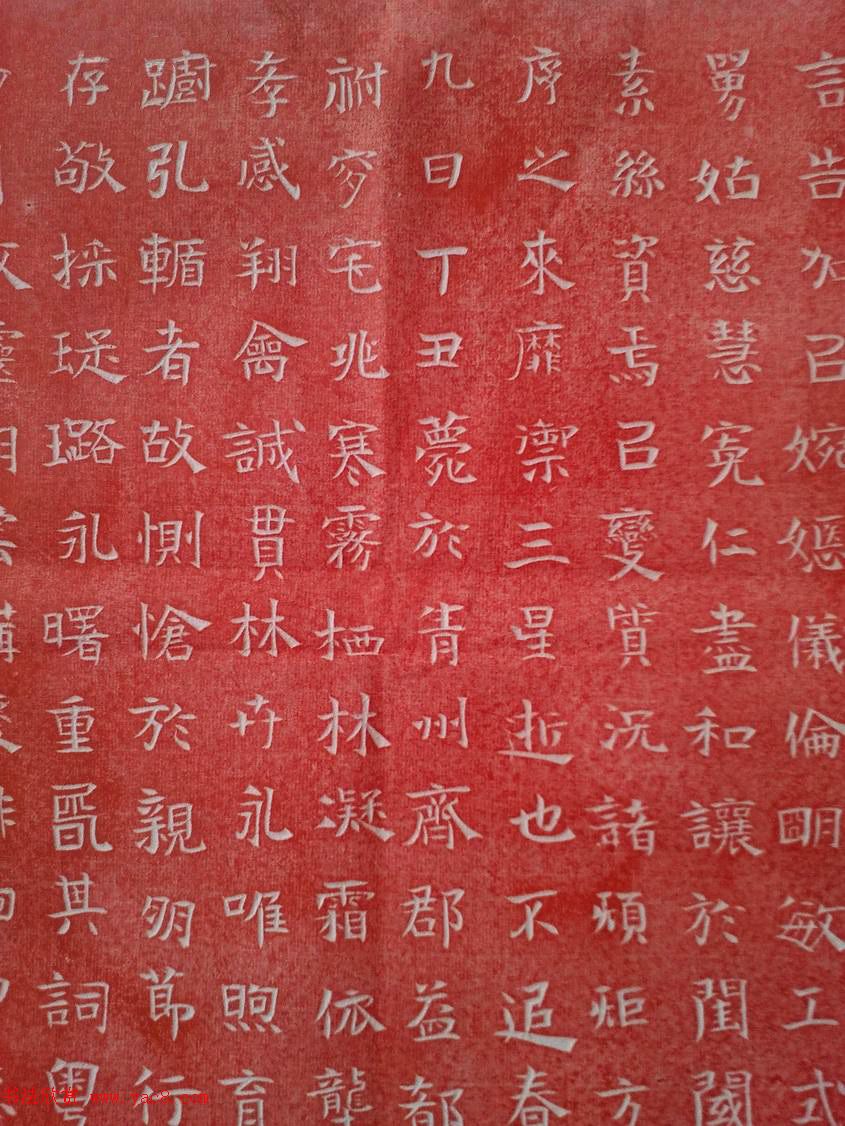 言告加召婉嫕儀倫明敏工式
舅姑慈慧寬仁盡和讓於閨閫
素絲資焉召變質況諸煩炬方
序之來靡禦三星逝也不追春
九日丁丑薨於青州齊郡益都
祔窆宅兆寒霧栖林凝霜依壟
孝感翔禽誠貫林卉永唯煦育
躕引輴者故惻愴於親朋節行
存敬採琁璐永曙重罰其詞粵
www.yac8.com